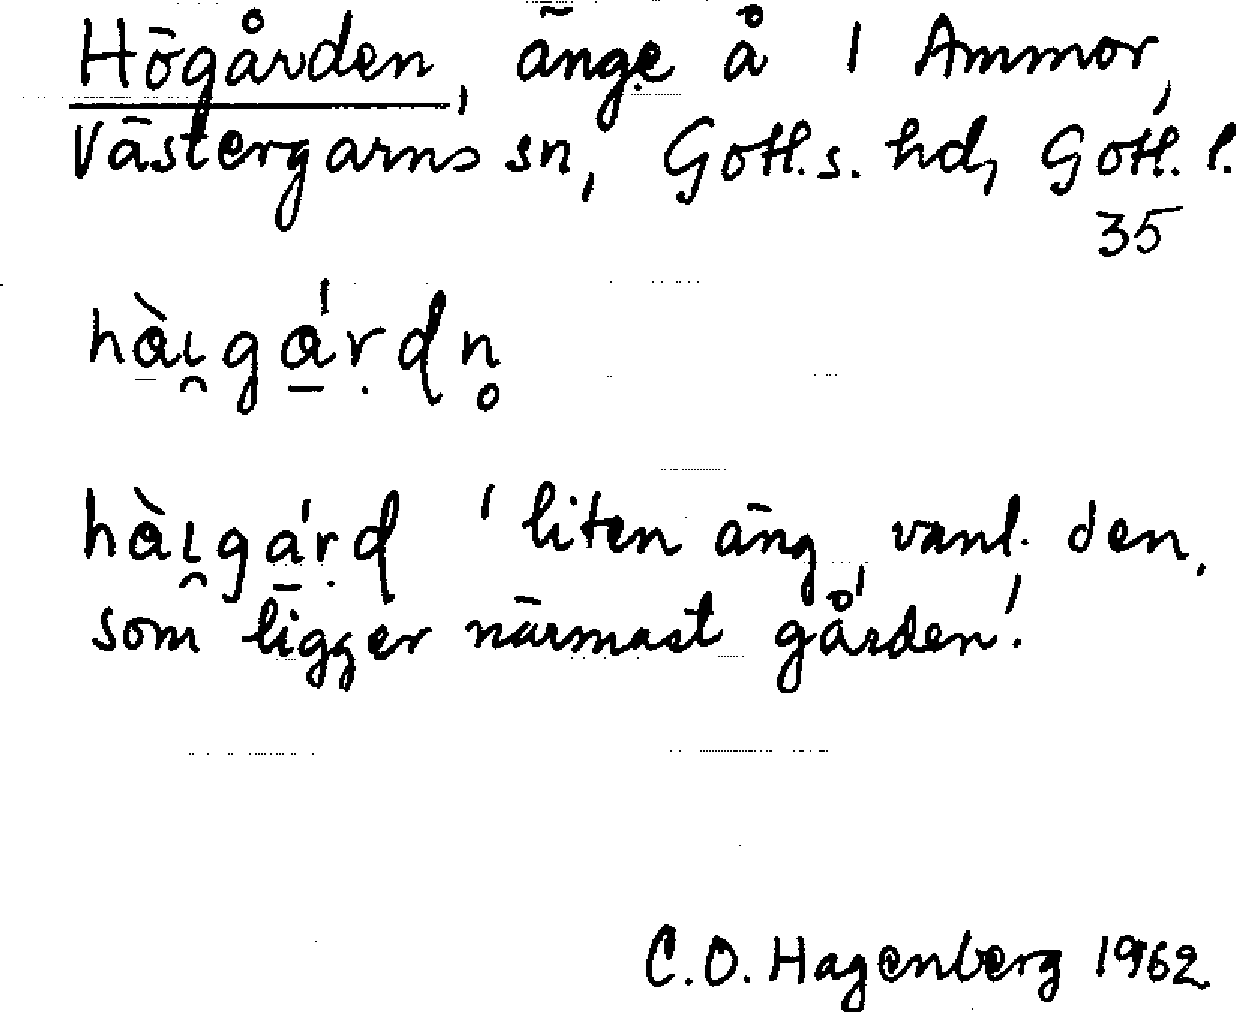 Högården, änge å 1 Ammor,
Västergarns sn, Gotl. s. hd, Gotl. l.
35
hàı̯gá̱ṛdn̥
hàı̯gá̱ṛd 'liten äng, vanl. den,
som ligger närmast gården'.
C.O. Hagenberg 1962